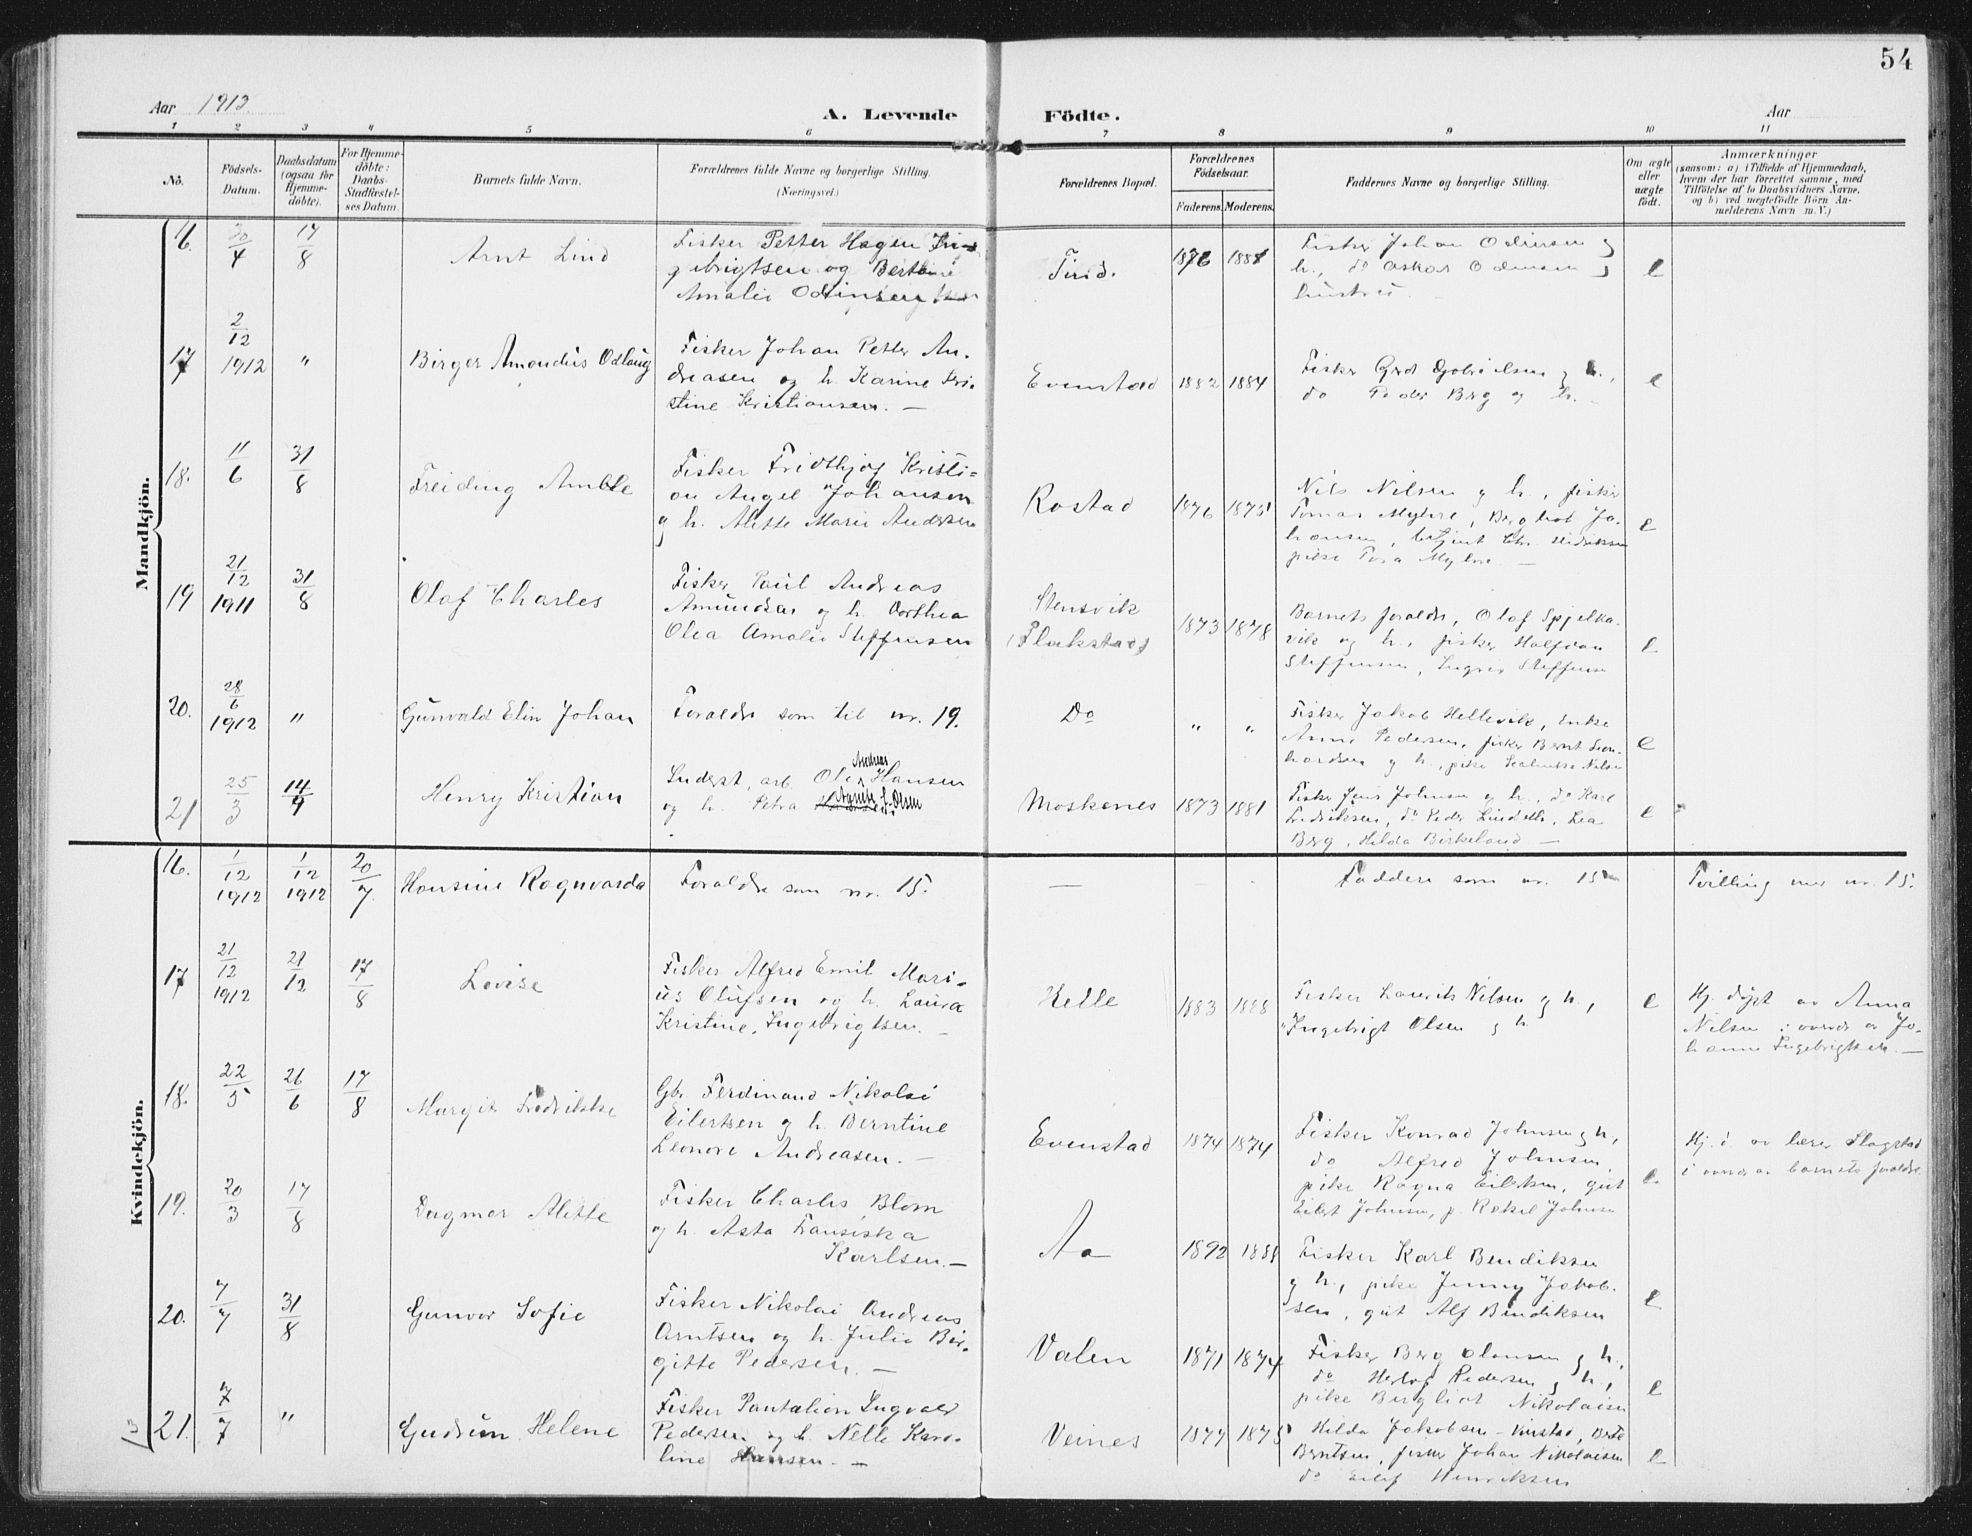 54
Aar 1913
A. Levende Födte.
Aar
1 2 3 4 5 6 7 8 9 10 11
No.
Födsels-
Datum.
Daabsdatum
(ogsaa for
Hjemme-
döbte).
For Hjemme-
döbte:
Daabs-
Stadfæstel-
ses Datum.
Barnets fulde Navn.
Forældrenes fulde Navne og borgerlige Stilling.
(Næringsvei.)
Forældrenes Bopæl.
Forældrenes
Födselsaar.
Faderens. Moderens.
Faddernes Navne og borgerlige Stilling.
Om ægte
eller
uægte
födt.
Anmærkninger
(saasom: a) i Tilfælde af Hjemmedaab,
hvem der har forrettet samme, med
Tilföielse af to Daabsvidners Navne,
og b) ved uægtefödte Börn An-
melderens Navn m. V.)
Mandkjön.
16. 30/4 17/8 Arnt Lind
Fisker Petter Hagen In-
gebrigtsen og Bertine
Amalie Odinsen
Tind. 1876 1881
Fisker Johan Odinsen og
h., do Oskar Odinsen og
hustru.
e
17 2/12 1912 " Birger Amandus Odlaug
Fisker Johan Petter An-
dreasen og h. Karine Kri-
stine Kristiansen. —
Evenstad 1882 1884
Fisker Gerh Gabrielsen og h.,
do Peder Berg og h. —
e
18. 11/6 31/8 Freiding Amble
Fisker Fridthjof Kristi-
an Angel Johansen
og h. Alette Marie Andersen
Rostad 1876 1875
Nils Nilsen og h., fisker
Tomas Myhre, Bergliot Jo-
hansen, Chr. Hedriksen
pike Tora Myhre. —
e
19 21/12 1911 31/8 Olaf Charles
Fisker Paul Andreas
Amundsen og h. Dorthea
Olea Amalie Steffensen
Stensvik
(Flakstad) 1873 1878
Barnets foraldre, Olaf Spjelka-
vik og h., fisker Halfdan
Steffensen, Ingrid Steffensen
e
20. 28/6 1912 " Gunvald Elin Johan
Foraldre som til nr. 19.
Do " "
Fisker Jakob Hellevik, enke
Anne Pedersen, fisker Bernt Leon-
hardsen og h., pike Nilsen
e
21 25/3 14/9 Henry Kristian
Inderst, arb. Ole Andreas Hansen
og h. Petra Agnes J. Olsen
Moskenes 1873 1881
Fisker Jens Johnsen og h., do Karl
Fredriksen, do Peder Lindseth, Lea
Berg, Hilda Birkeland —
e
Kvindekjön.
16. 1/12 1912 1/12 1912 20/7. Hansine Ragnvarda
Foraldre som nr. 15.
— - -
Faddere som nr. 15
Tvilling med nr. 15.
17 21/12 1912 21/12 17/8 Lovise
Fisker Alfred Emil Mari-
us Olufsen og h. Laura
Kristine Ingebrigtsen. —
Helle 1883 1888
Fisker Laurits Nilsen og h.,
" Ingebrigt Olsen og h
e
Hj. døpt av Anna
Nilsen i overv av Jo-
hanne Ingebrigtsen. —
18. 22/5 26/6 17/8 Margit Fredrikke
Gbr. Ferdinand Nikolai
Eilertsen og h. Berntine
Leonore Andreasen. —
Evenstad 1874 1874
Fisker Konrad Johnsen og h,
do Alfred Johnsen,
pike Ragna Eilertsen, gut
Eilert Johnsen, p. Rakel Johnsen
e.
Hj. d av lærer Slagstad
i overv av barnets foraldre
19. 20/3 17/8 Dagmar Alette
Fisker Charles Blom
og h. Asta Fransiska
Karlsen. —
Aa 1892 1888
Fisker Karl Bendiksen
og h., pike Jenny Jakob-
sen, gut Alf Bendiksen
e
20. 7/7 31/8 Gunvor Sofie
Fisker Nikolai Andreas
Arntsen og h. Julie Bir-
gitte Pedersen. —
Valen 1871 1874
Fisker Berg Olausen og h.,
do Herlof Pedersen og h.,
pike Bergliot Nikolaisen
e
21. 7/7 " Gudrun Helene
Fisker Pantalion Ingvald
Pedersen og h. Nelle Karo-
line Hansen. —
Veines 1874 1875
Hilda Jakobsen - Krystad, Berte
Berntsen, fisker Johan Nikolaisen
do Eilif Henriksen
e